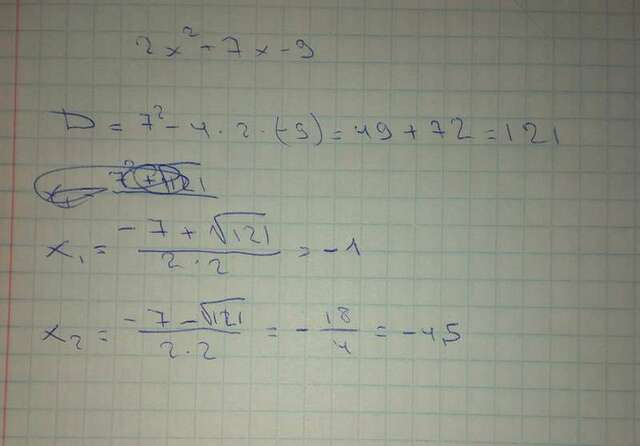 2x² + 7x - 9
D = 7² - 4 · 2 · (-9) = 49 + 72 = 121
x₁ = (-7 + √121)/(2 · 2) = -1
x₂ = (-7 - √121)/(2 · 2) = -18/4 = -4,5